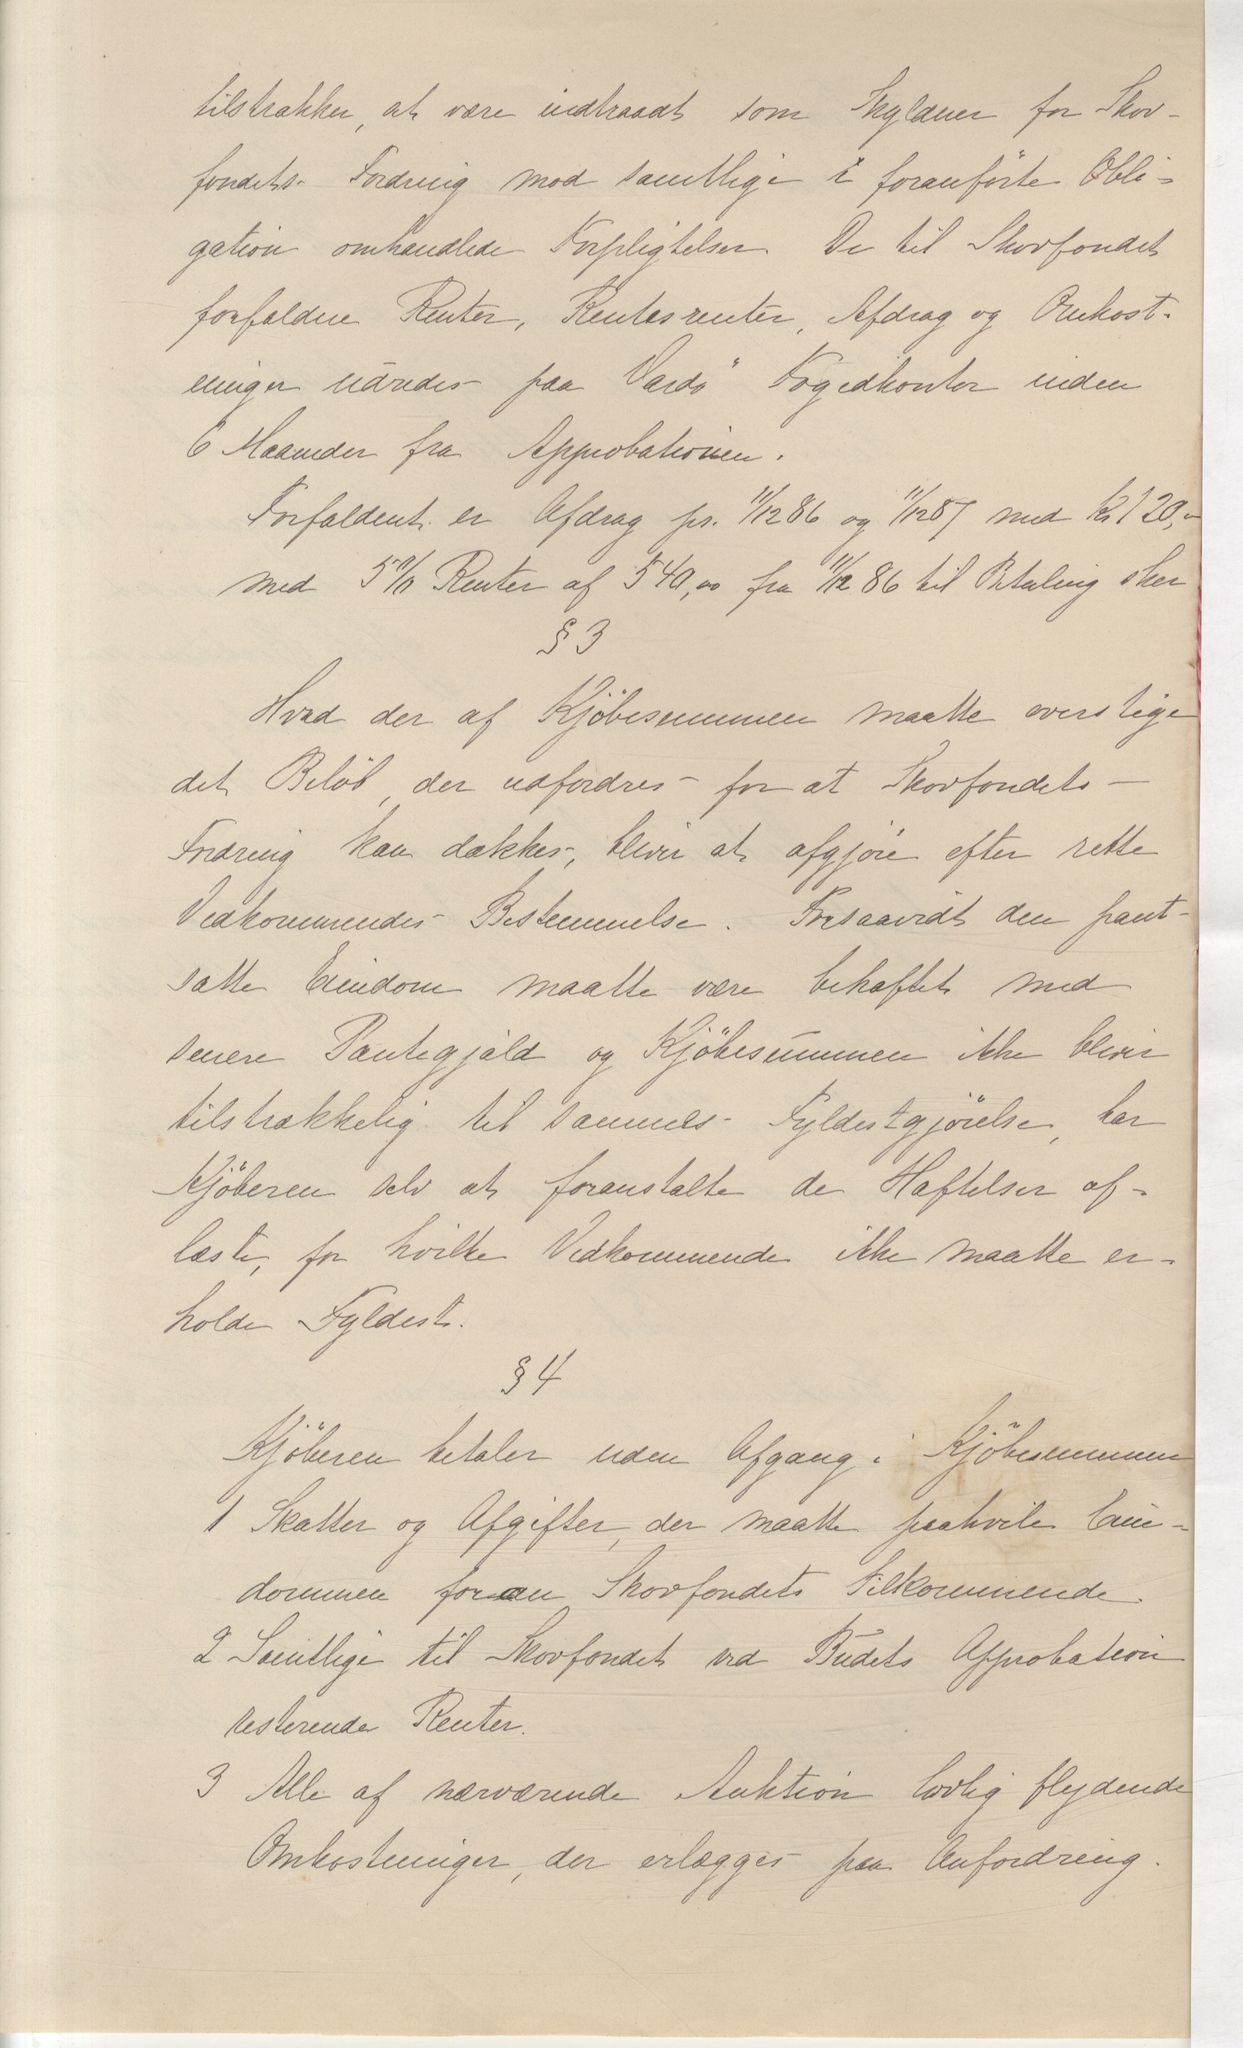 tilstrækker, at være indtraadt som Skyldner for Skov-
fondets Fordring mod samtlige i foranførte Obli-
gation omhandlede Forpligtelser. De til Skovfondet
forfaldne Renter, Rentesrenter, Afdrag og Omkost-
ninger udredes paa Vardø Fogedkontor inden
6 Maaneder fra Approbationen.
Forfaldent er Afdrag pr. 11/12 86 og 11/12 87 med Kr 120,-
med 5 % Renter af 540,00 fra 11/12 86 til Betaling sker
§ 3
Hvad der af Kjøbesummen maatte overstige
det Beløb, der udfordres for at Skovfondets
Fordring kan dækkes, bliver at afgjøre efter rette
Vedkommendes Bestemmelse. Forsaavidt den pant-
satte Eiendom maatte være behæftet med
senere Pantegjæld og Kjøbesummen ikke bliver
tilstrækkelig til sammes Fyldestgjørelse, har
Kjøberen selv at foranstalte de Hæftelser af-
læste, for hvilke Vedkommende ikke maatte er-
holde Fyldest.
§ 4
Kjøberen betaler uden Afgang i Kjøbesummen
1 Skatter og Afgifter, der maatte paahvile Eien-
dommen foran Skovfondets Tilkommende.
2 Samtlige til Skovfondet ved Budets Approbation
resterende Renter.
3 Alle af nærværende Auktion lovlig flydende
Omkostninger, der erlægges paa Anfordring.